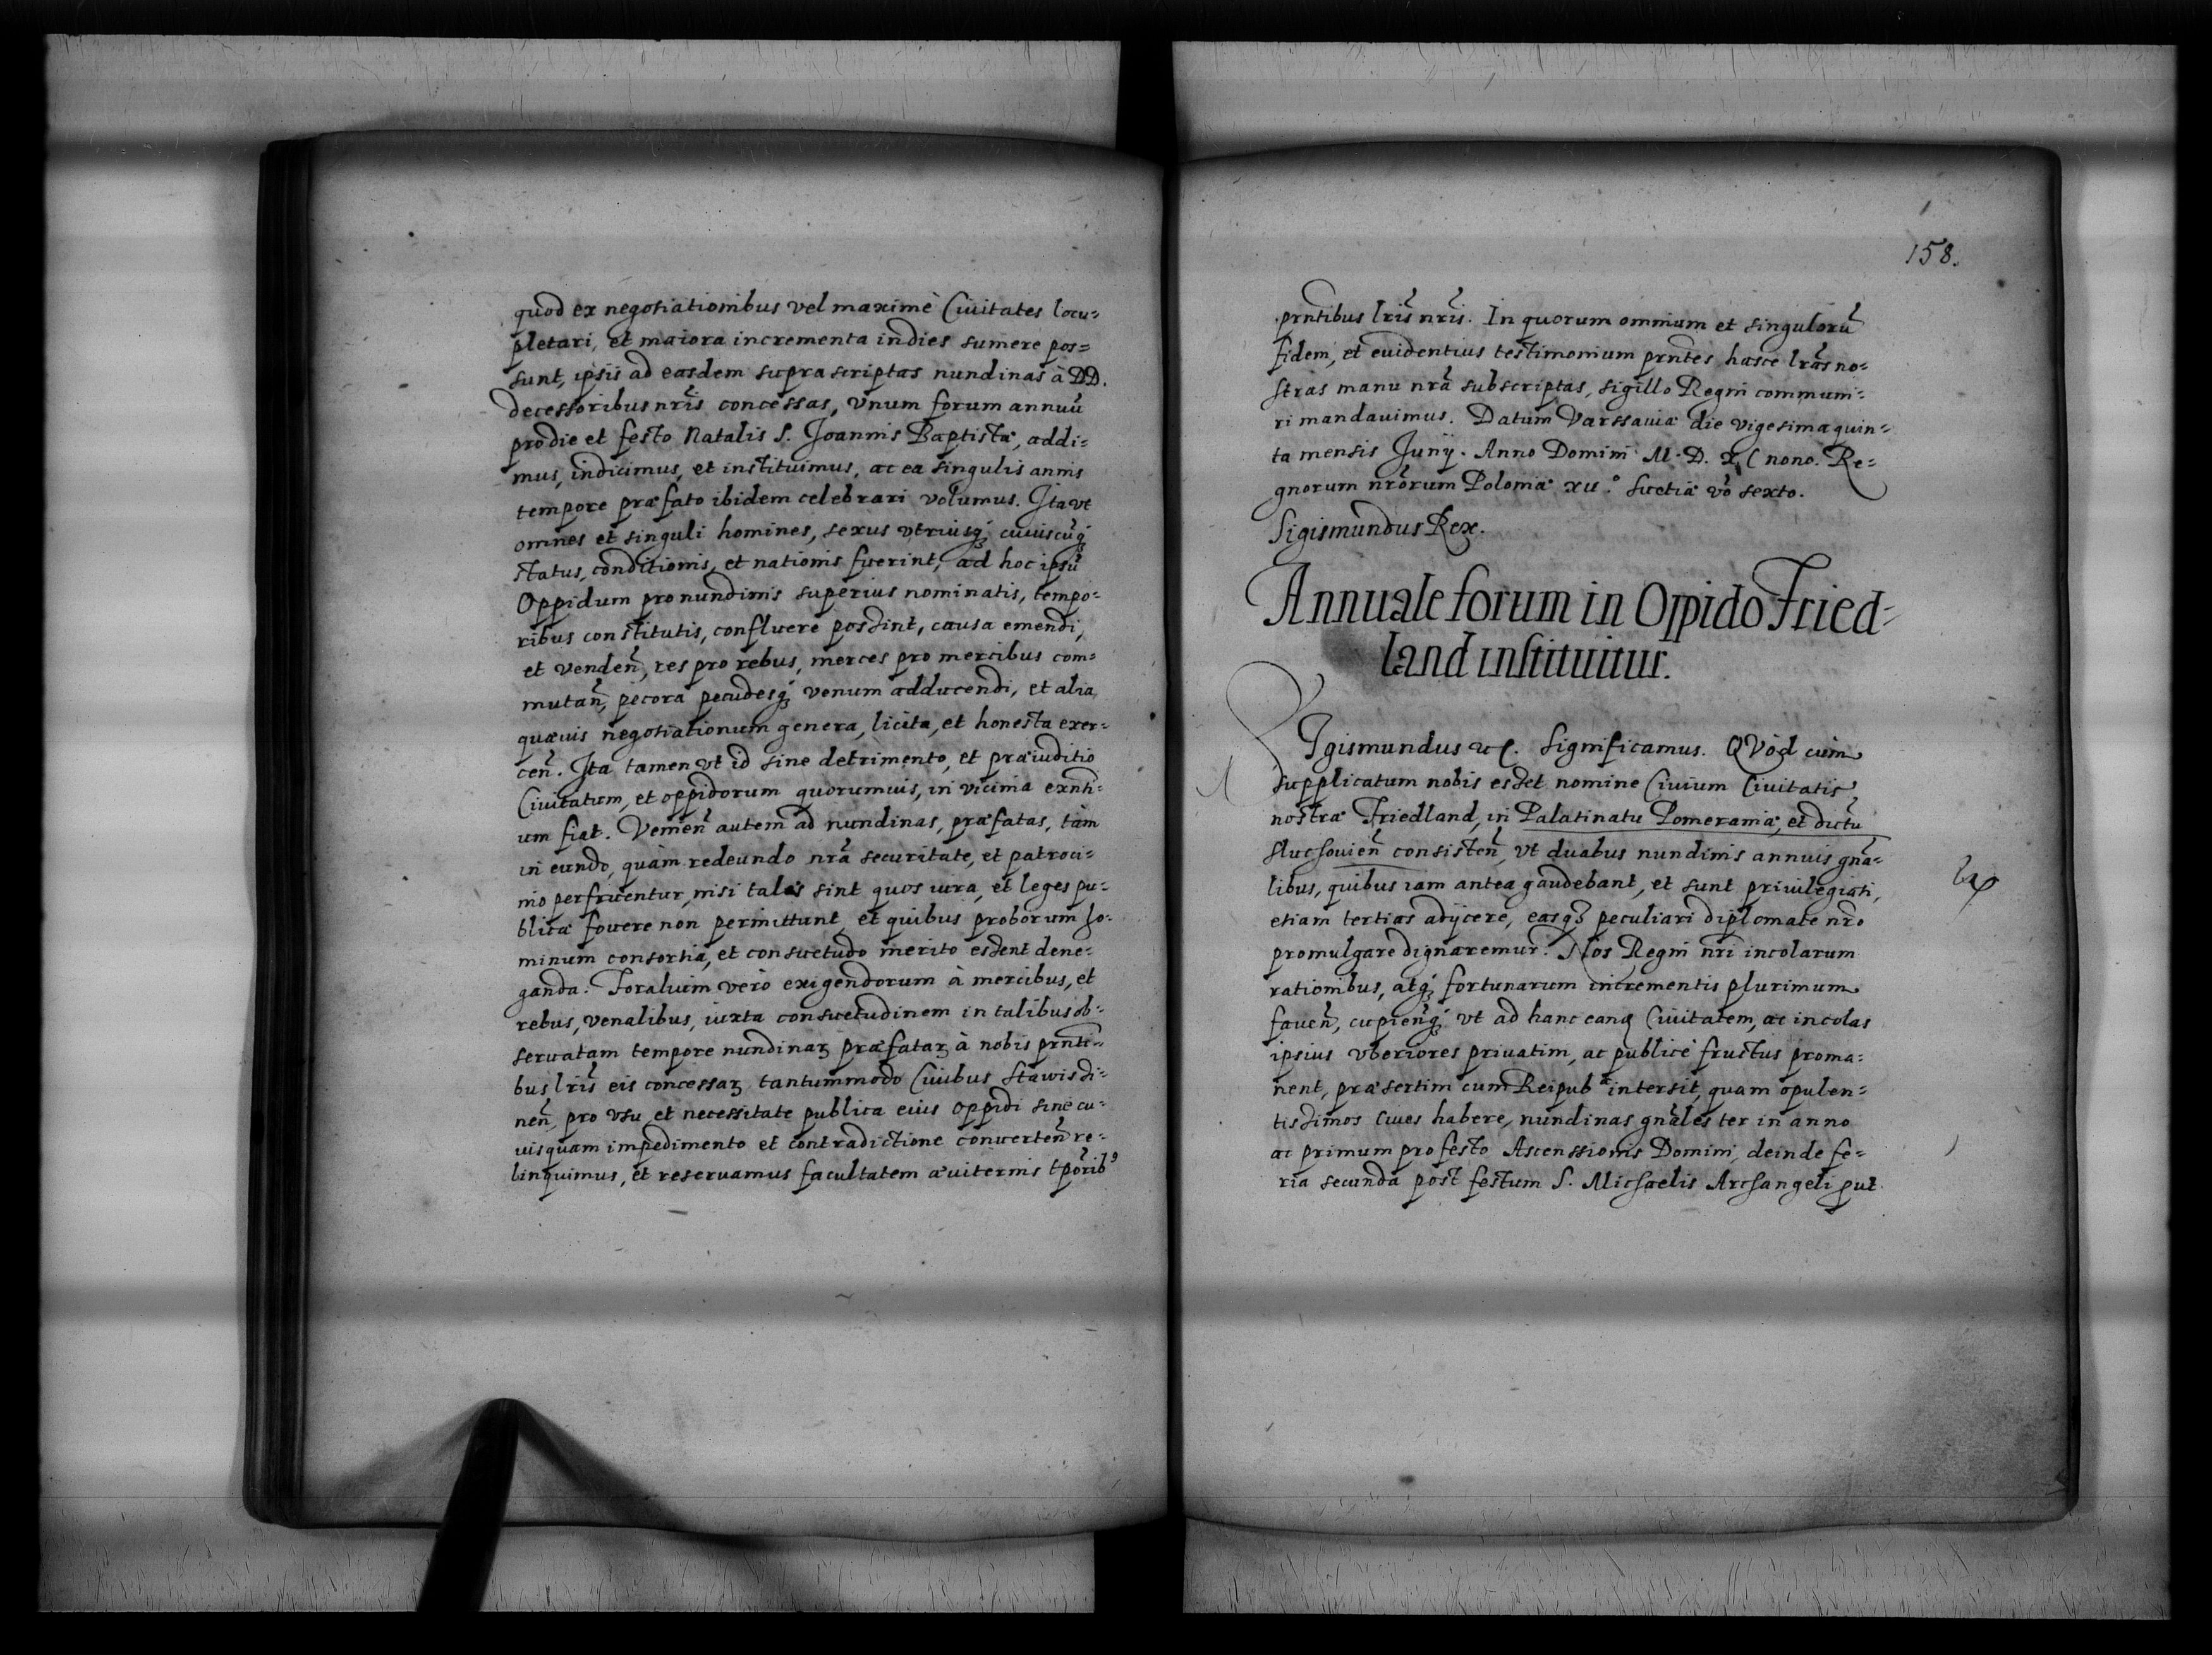 quod ex negotiationibus vel maximè Ciuitates locu=
pletari, et maiora incrementa indies sumere pos=
sunt, ipsis ad easdem supra scriptas nundinas à DD.
decessoribus nr̃is concessas, vnum forum annuũ
pro die et festo Natalis S. Joannis Baptistæ, addi=
mus, indicimus, et instituimus, ac ea singulis annis
tempore præfato ibidem celebrari volumus. Ita vt
omnes et singuli homines, sexus vtriusq; cuiuscũq;
status, conditionis, et nationis fuerint, ad hoc ipsũ
Oppidum pro nundinis superius nominatis, tempo=
ribus constitutis, confluere possint, causa emendi,
et venden̄, res pro rebus, merces pro mercibus com=
mutan̄, pecora pecudesq; venum adducendi, et alia
quæuis negotiationum genera, licita, et honesta exer=
cen̄. Ita tamen vt id sine detrimento, et præiuditio
Ciuitatum, et oppidorum quorumuis, in vicinia exñti=
um fiat. Venien̄ autem ad nundinas, præfatas, tàm
in eundo, quàm redeundo nr̃a securitate, et patroci=
nio perfruentur, nisi tales sint quos iura, et leges pu=
blicæ fouere non permittunt, et quibus proborum ho=
minum consortia, et consuetudo merito essent dene=
ganda. Foralium verò exigendorum à mercibus, et
rebus, venalibus, iuxta consuetudinem in talibus ob=
seruatam tempore nundinaꝝ præfataꝝ à nobis prñti=
bus lr̃is eis concessaꝝ tantummodo Ciuibus Stawisdi=
nen̄, pro vsu et necessitate publica eius oppidi sine cu=
uisquam impedimento et contradictione conuerten̄ re=
linquimus, et reseruamus facultatem æuiternis tp̃orib9
158.
prñtibus lr̃is nr̃is. In quorum omnium et singulorũ
fidem, et euidentius testimonium prñtes hasce lr̃as no=
stras manu nr̃a subscriptas, sigillo Regni communi=
ri mandauimus. Datum Varssauiæ die vigesima quin=
ta mensis Junij. Anno Domini M. D. XC nono. Re=
gnorum nr̃orum Poloniæ xii.º Suetiæ vō sexto.
Sigismundus Rex.
Annuale forum in Oppido Fried=
land instituitur.
SIgismundus etc. Significamus. QVòd cum
supplicatum nobis esset nomine Ciuium Ciuitatis
nostræ Friedland, in Palatinatu Pomeraniæ, et dictũ
Sluchouien̄ consisten̄, vt duabus nundinis annuis gñā=
libus, quibus iam antea gaudebant, et sunt priuilegiati,
etiam tertias adijcere, easq; peculiari diplomate nr̃o
promulgare dignaremur. Nos Regni nr̃i incolarum
rationibus, atq; fortunarum incrementis plurimum
fauen̄, cupienq; vt ad hanc eanq Ciuitatem, ac incolas
ipsius vberiores priuatim, ac publicè fructus proma=
nent, præsertim cum Reipub.æ intersit, quam opulen=
tissimos ciues habere, nundinas gñāles ter in anno
ac primum pro festo Ascenssionis Domini, deinde fe=
ria secunda post festum S. Michaelis Archangeli put